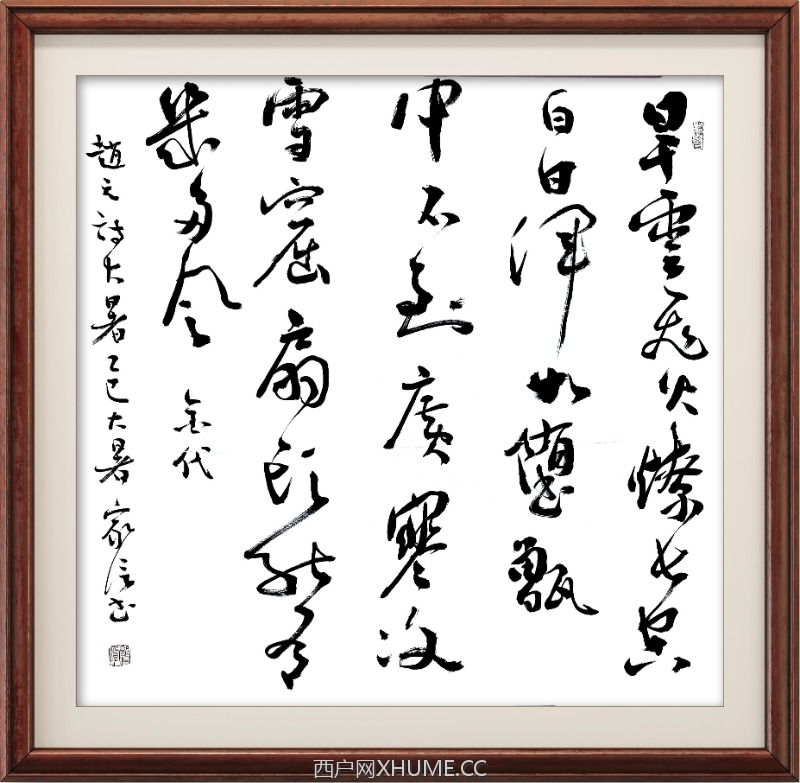 旱雲飛火燎长空
白日渾如墮甑
中不到廣寒冰
雪窟扇头能有
幾多风 金代
趙元詩大暑乙巳大暑家信书
西户网XHUME.CC